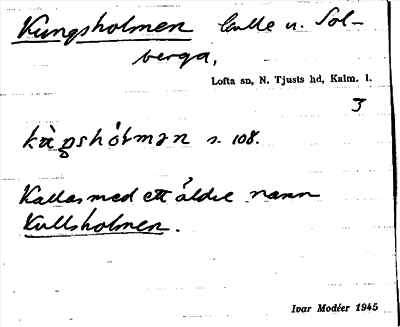 Kungsholmen kulle u. Sol-
berga,
Lofta sn, N. Tjusts hd, Kalm. l.
3
kùŋshólmən s. 108.
Kallas med ett äldre namn
Kullsholmen.
Ivar Modéer 1945